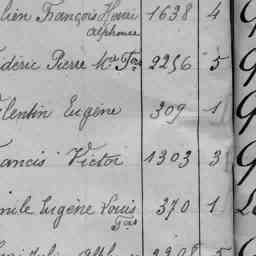 lien François Henri 1638 4
Alphonse
édéric Pierre Mie Fois 2256 5
lentin Eugène 309 1
rancis Victor 1303 3
mile Eugène Louis 370 1
Fois
2208 5